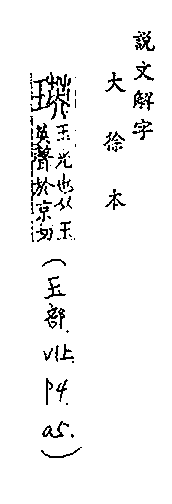 説文解字
大徐本
瑛
玉光也从玉
英聲於京切
(玉部. V1上. P4. a5.)